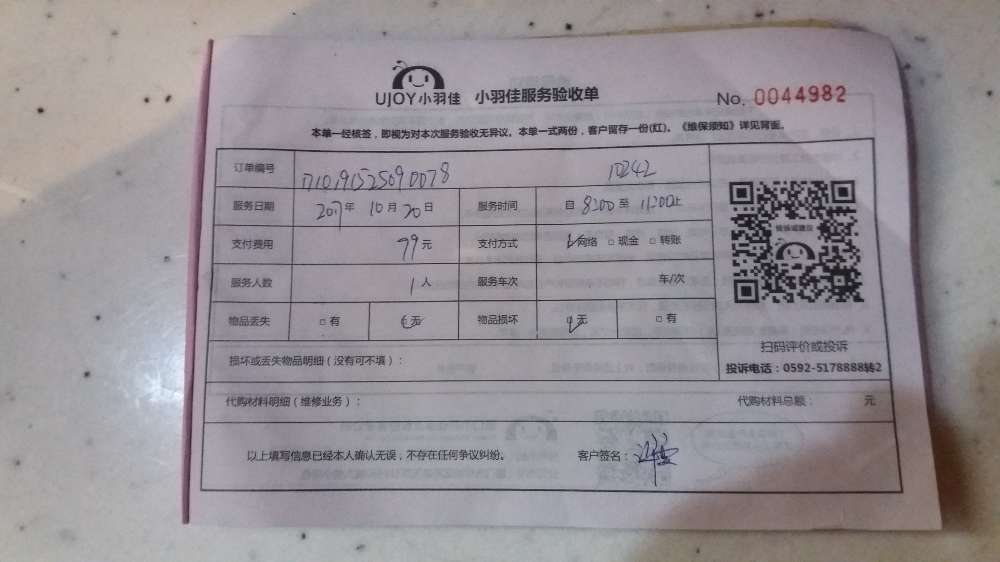 UJOY小羽佳 小羽佳服务验收单 No. 0044982
本单一经核签，即视为对本次服务验收无异议。本单一式两份，客户留存一份(红)。《维保须知》详见背面。
订单编号 1710191525090078 10242
服务日期 2017年 10月20日 服务时间 自 8:00至 11:00止
支付费用 99元 支付方式 网络 □ 现金 □ 转账
服务人数 1人 服务车次 车/次
物品丢失 □ 有 无 物品损坏 无 □ 有
损坏或丢失物品明细（没有可不填）：
扫码评价或投诉
投诉电话：0592-5178888转2
代购材料明细（维修业务）： 代购材料总额： 元
以上填写信息已经本人确认无误，不存在任何争议纠纷。 客户签名：